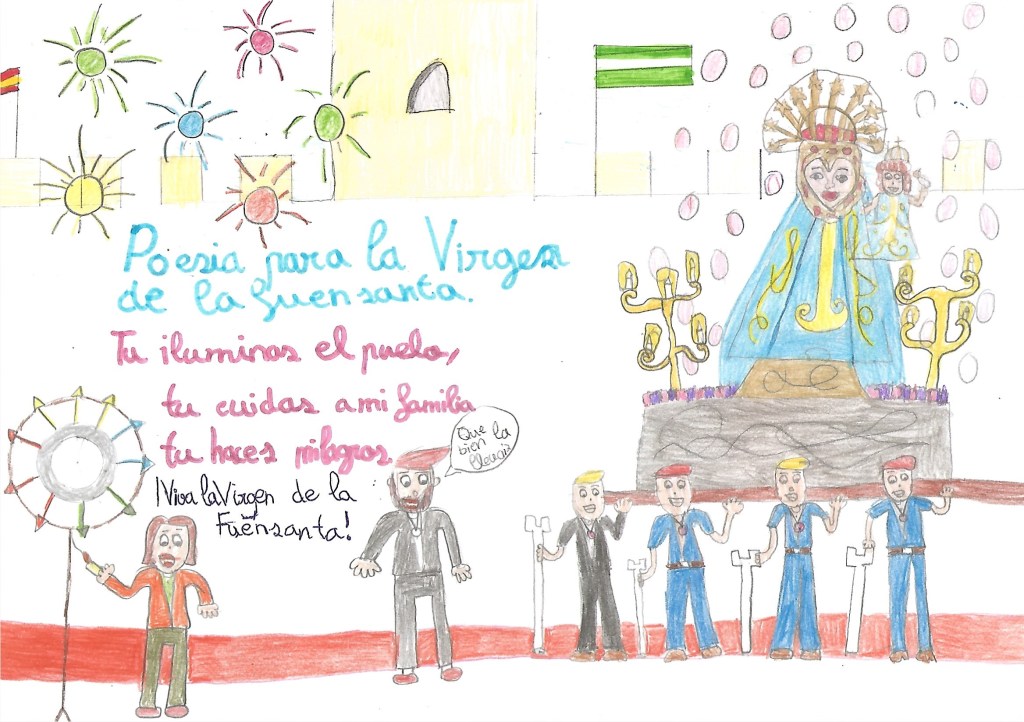 Poesia para la Virgen
de la fuensanta.
Tu iluminas el puelo,
tu cuidas a mi familia
tu haces milagros
¡Viva la Virgen de la
Fuensanta!
Que la
bien
llevais